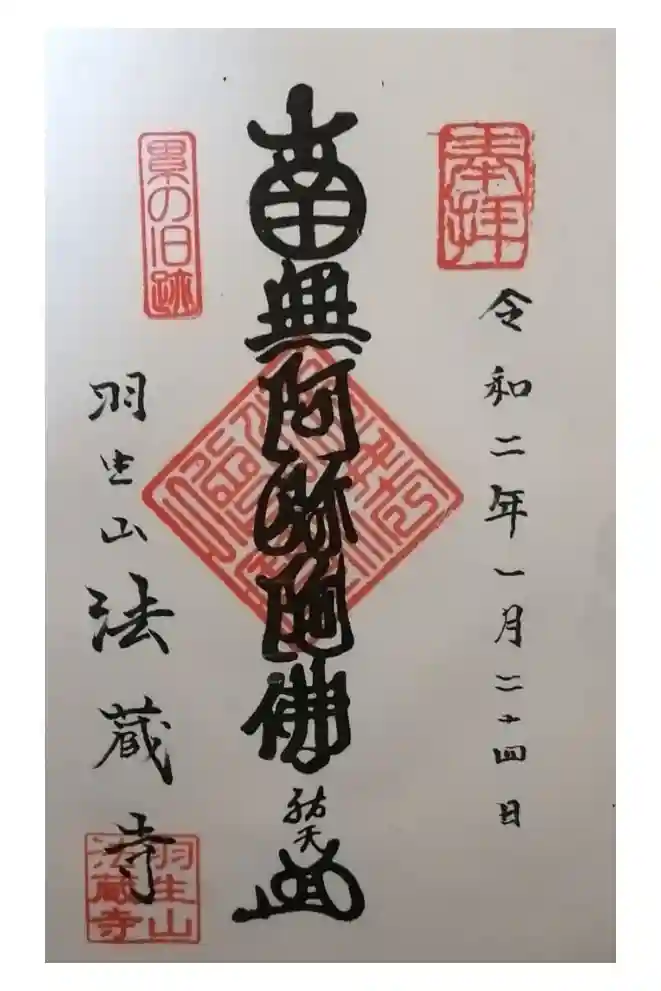 奉拝
令和二年一月二十四日
南無阿弥陀佛
祐天
累の旧跡
羽生山法蔵寺
羽生山
法蔵寺